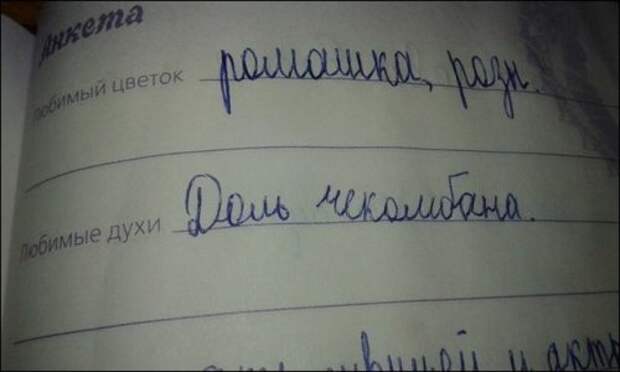 Анкета
Любимый цветок ромашка, розы.
Любимые духи Доль чекомбана.
й и акт